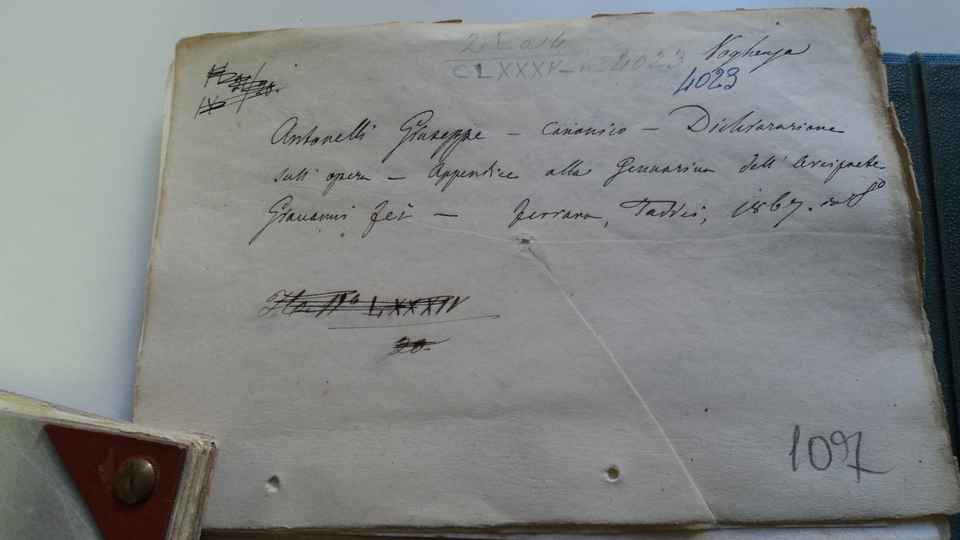 CLXXXV - n. 4023
Voghenza
4023
Antonelli Giuseppe - Canonico - Dichiarazione
sull'opera - Appendice alla Gennarina dell'Arciprete
Giovanni Fei - Ferrara, Taddei, 1867. in 8º
LXXXIV
20.
1097